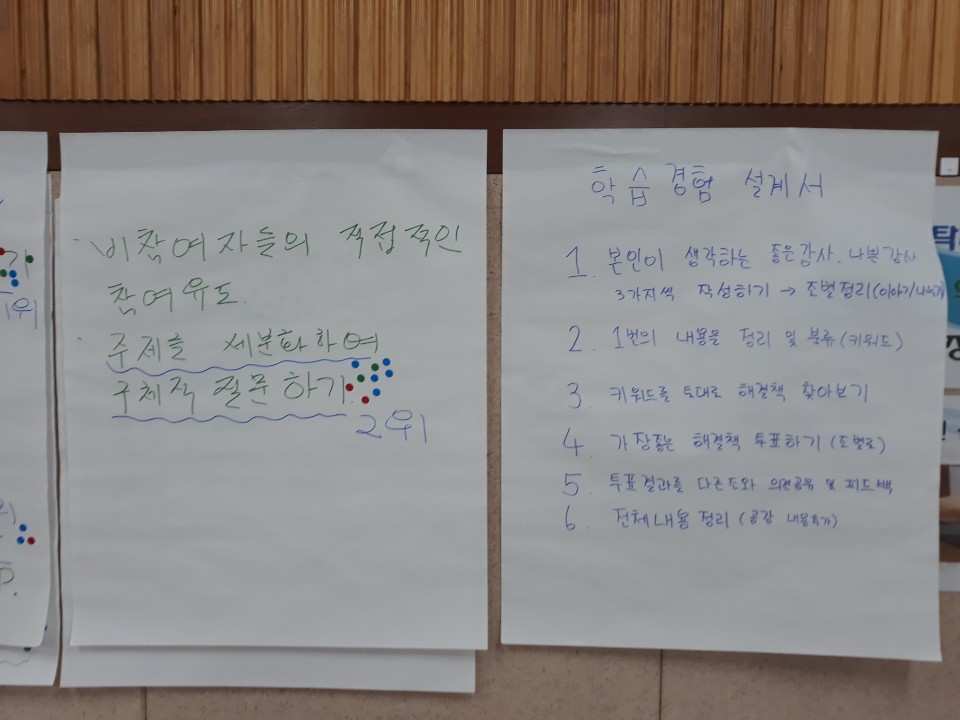 1위
· 비참여자들의 직접적인
참여유도.
· 주제를 세분화하여
구체적 질문하기.
2위
학습경험 설계서
1. 본인이 생각하는 좋은강사. 나쁜강사
3가지씩 작성하기 → 조별정리(이야기나누기)
2. 1번의 내용을 정리 및 분류(키워드)
3 키워드를 토대로 해결책 찾아보기
4. 가장좋은 해결책 투표하기(조별로)
5. 투표결과를 다른조와 의견공유 및 피드백
6. 전체내용정리(공감 내용추가)
탁